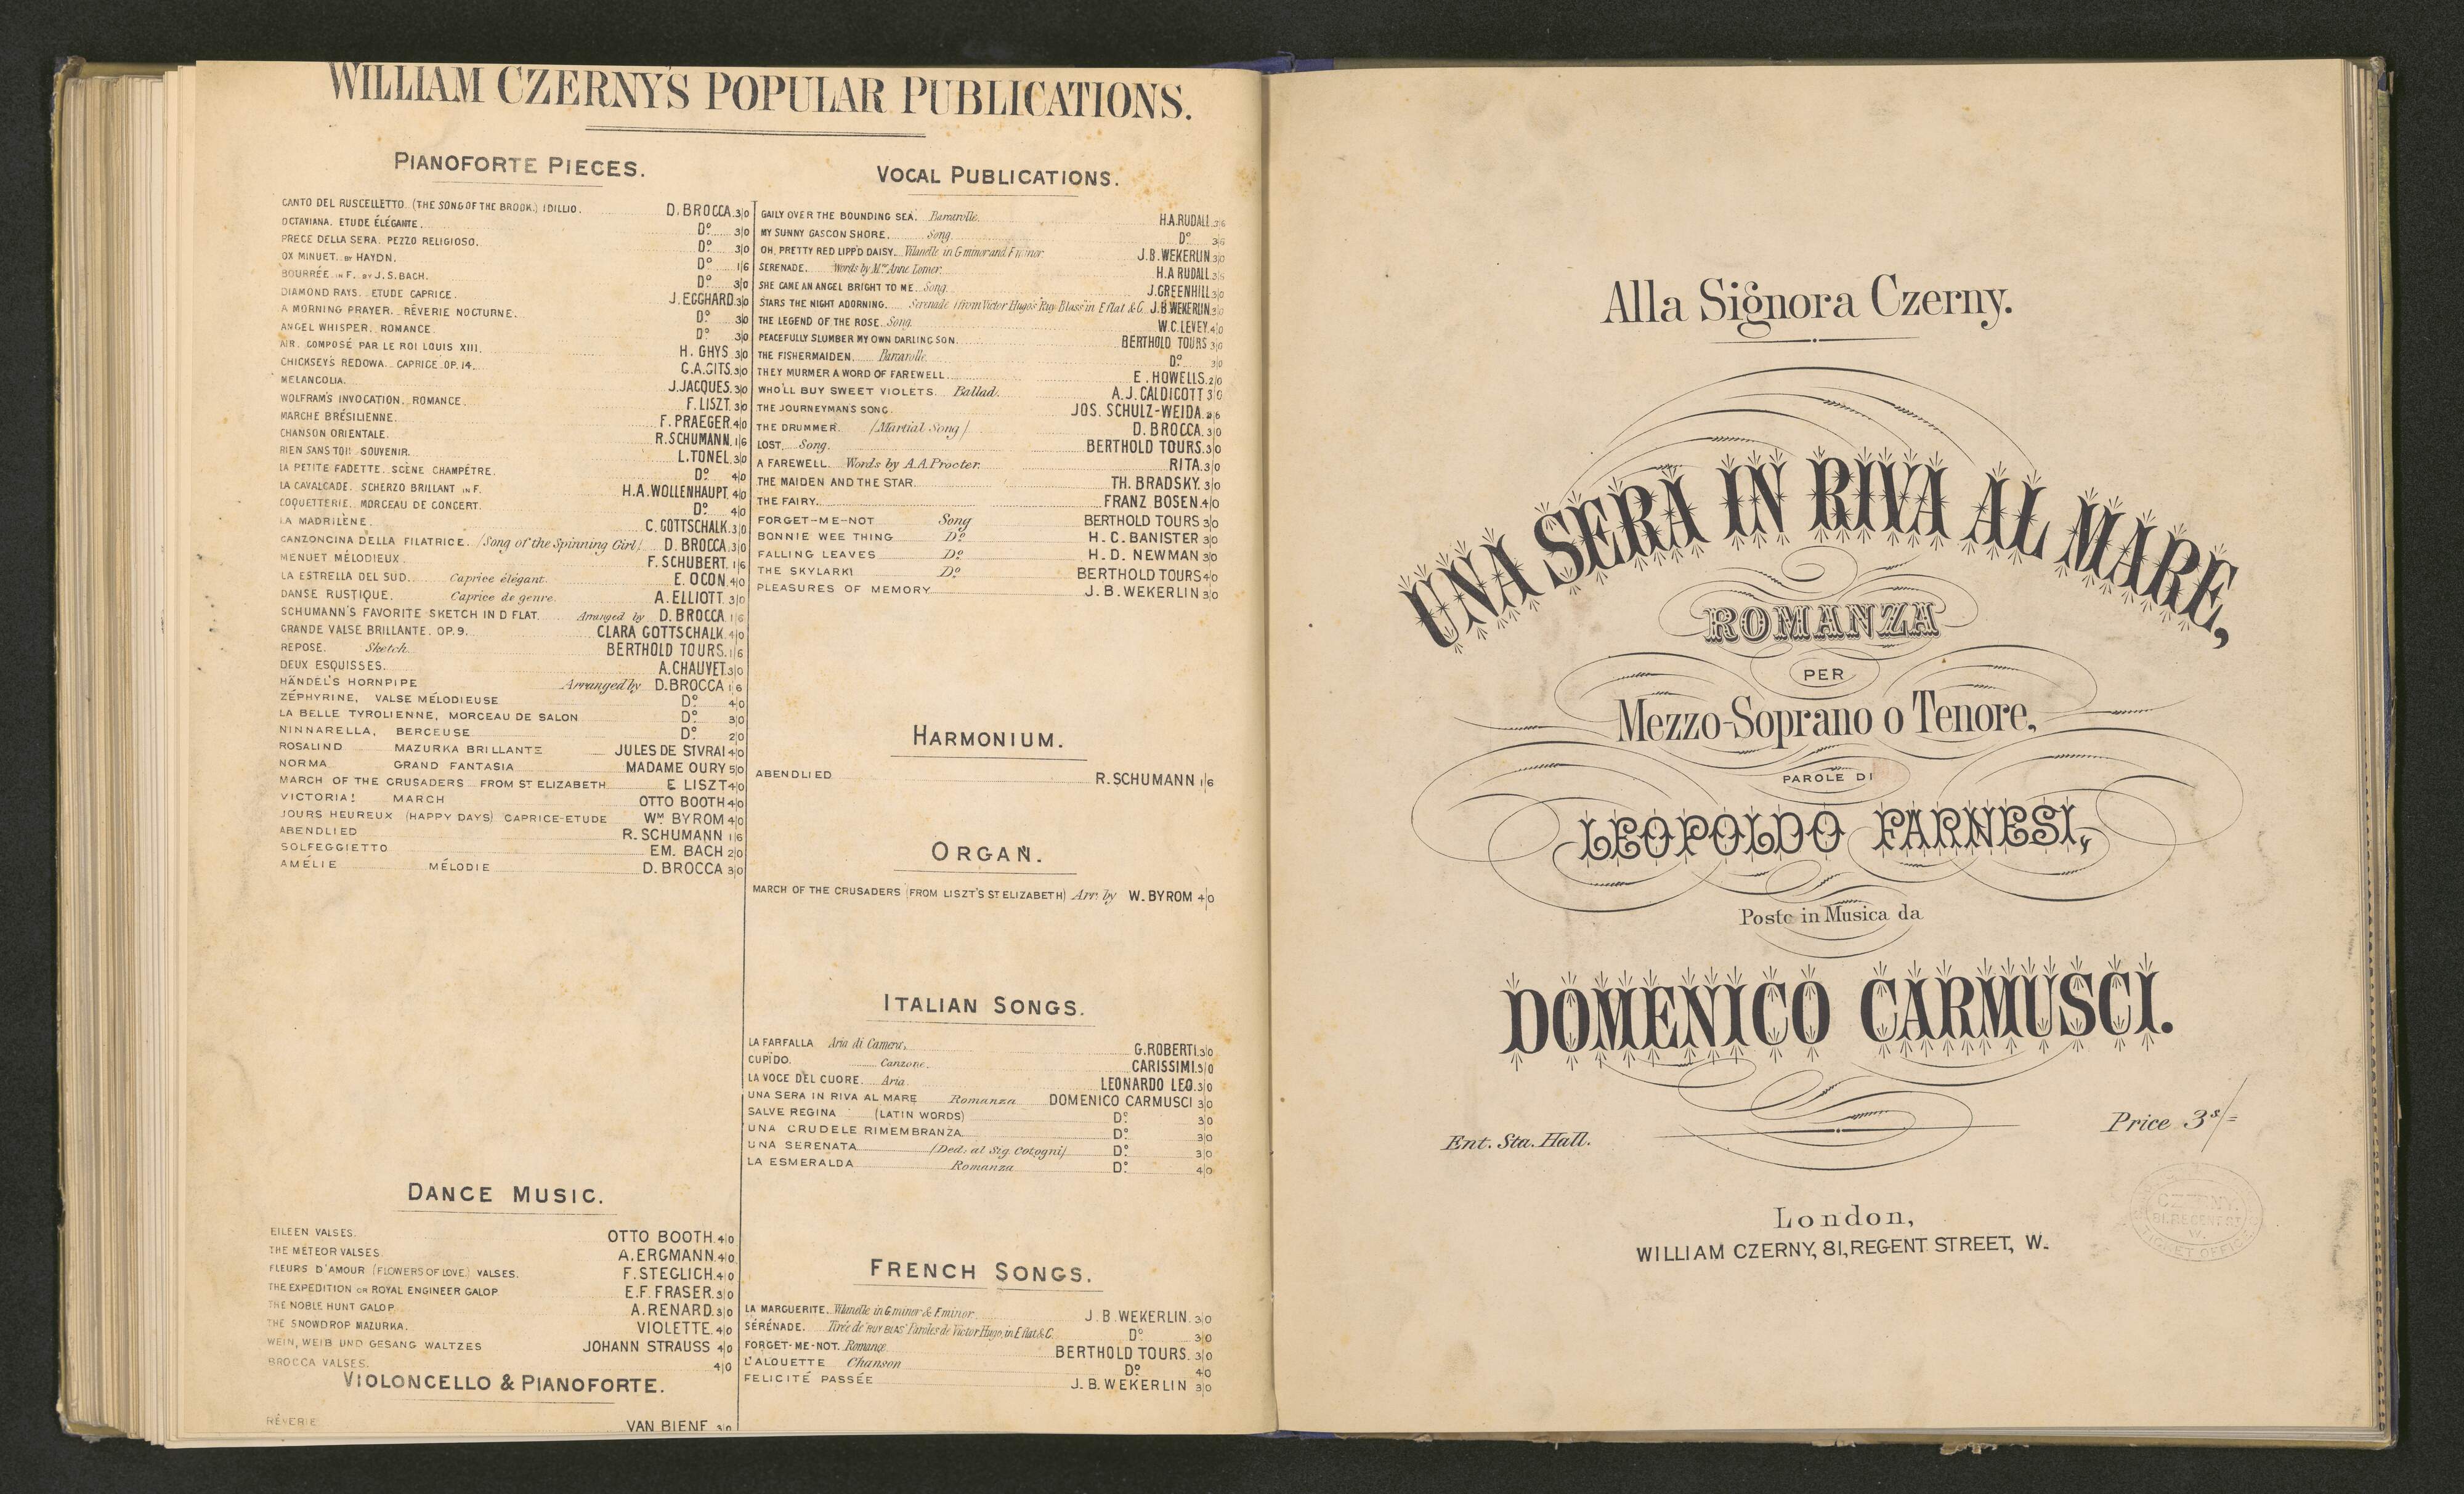 WILLIAM CZERNY'S POPULAR PUBLICATIONS.
PIANOFORTE PIECES.
CANTO DEL RUSCELLETTO (THE SONG OF THE BROOK.) IDILLIO. D. BROCCA. 3/0
OCTAVIANA. ETUDE ÉLÉGANTE. Do. 3/0
PRECE DELLA SERA. PEZZO RELIGIOSO. Do. 3/0
OX MINUET. BY HAYDN. Do. 1/6
BOURRÉE IN F. BY J.S. BACH. Do. 3/0
DIAMOND RAYS. ETUDE CAPRICE. J. EGGHARD. 3/0
A MORNING PRAYER. RÊVERIE NOCTURNE. Do. 3/0
ANGEL WHISPER. ROMANCE Do. 3/0
AIR. COMPOSÉ PAR LE ROI LOUIS XIII. H. GHYS. 3/0
CHICKSEY'S REDOWA. CAPRICE OP. 14. G.A. GITS. 3/0
MELANCOLIA. J. JACQUES. 3/0
WOLFRAM'S INVOCATION. ROMANCE. F. LISZT. 3/0
MARCHE BRÉSILIENNE. F. PRAEGER. 4/0
CHANSON ORIENTALE. R. SCHUMANN. 1/6
RIEN SANS TOI! SOUVENIR. L. TONEL. 3/0
LA PETITE FADETTE. SCÈNE CHAMPÉTRE. Do. 4/0
LA CAVALCADE. SCHERZO BRILLANT IN F. H.A. WOLLENHAUPT. 4/0
COQUETTERIE. MORCEAU DE CONCERT. Do. 4/0
LA MADRILÈNE. C. GOTTSCHALK. 3/0
CANZONCINA DELLA FILATRICE. (Song of the Spinning Girl) D. BROCCA. 3/0
MENUET MÉLODIEUX. F. SCHUBERT. 1/6
LA ESTRELLA DEL SUD. Caprice élégant. E. OCON. 4/0
DANSE RUSTIQUE. Caprice de genre. A. ELLIOTT. 3/0
SCHUMANN'S FAVORITE SKETCH IN D FLAT. Arranged by D. BROCCA. 1/6
GRANDE VALSE BRILLANTE. OP. 9. CLARA GOTTSCHALK. 4/0
REPOSE. Sketch. BERTHOLD TOURS. 1/6
DEUX ESQUISSES. A. CHAUVET. 3/0
HÄNDEL'S HORNPIPE Arranged by D. BROCCA 1/6
ZÉPHYRINE, VALSE MÉLODIEUSE Do. 4/0
LA BELLE TYROLIENNE, MORCEAU DE SALON Do. 3/0
NINNARELLA, BERCEUSE Do. 2/0
ROSALIND MAZURKA BRILLANTE JULES DE SIVRAI 4/0
NORMA GRAND FANTASIA MADAME OURY 5/0
MARCH OF THE CRUSADERS FROM ST. ELIZABETH F. LISZT 4/0
VICTORIA! MARCH OTTO BOOTH 4/0
JOURS HEUREUX (HAPPY DAYS) CAPRICE-ETUDE WM. BYROM 4/0
ABENDLIED R. SCHUMANN 1/6
SOLFEGGIETTO EM. BACH 2/0
AMÉLIE MÉLODIE D. BROCCA 3/0
DANCE MUSIC.
EILEEN VALSES. OTTO BOOTH. 4/0
THE METEOR VALSES A. ERGMANN. 4/0
FLEURS D'AMOUR (FLOWERS OF LOVE.) VALSES. F. STEGLICH. 4/0
THE EXPEDITION OR ROYAL ENGINEER GALOP E.F. FRASER. 3/0
THE NOBLE HUNT GALOP. A. RENARD. 3/0
THE SNOWDROP MAZURKA. VIOLETTE. 4/0
WEIN, WEIB UND GESANG WALTZES JOHANN STRAUSS 4/0
BROCCA VALSES. 4/0
VIOLONCELLO & PIANOFORTE.
RÊVERIE VAN BIENE 3/0
VOCAL PUBLICATIONS.
GAILY OVER THE BOUNDING SEA. Barcarolle. H.A. RUDALL. 3/6
MY SUNNY GASCON SHORE. Song. Do. 3/6
OH, PRETTY RED LIPP'D DAISY. Vilanelle in G minor and F minor J.B. WEKERLIN. 3/0
SERENADE. Words by Mrs. Anne Lomer. H.A RUDALL 3/6
SHE CAME AN ANGEL BRIGHT TO ME. Song. J. GREENHILL 3/0
STARS THE NIGHT ADORNING. Serenade (from Victor Hugo's "Ruy Blass" in E flat & C. J.B. WEKERLIN. 3/0
THE LEGEND OF THE ROSE. Song. W.C. LEVEY. 4/0
PEACEFULLY SLUMBER MY OWN DARLING SON. BERTHOLD TOURS 3/0
THE FISHERMAIDEN. Barcarolle. Do. 3/0
THEY MURMER A WORD OF FAREWELL. E. HOWELLS. 2/0
WHO'LL BUY SWEET VIOLETS. Ballad. A.J. CALDICOTT 3/0
THE JOURNEYMAN'S SONG. JOS. SCHULZ-WEIDA. 2/6
THE DRUMMER. (Martial Song) D. BROCCA. 3/0
LOST. Song. BERTHOLD TOURS. 3/0
A FAREWELL. Words by A.A. Procter. RITA. 3/0
THE MAIDEN AND THE STAR. TH. BRADSKY. 3/0
THE FAIRY. FRANZ BOSEN. 4/0
FORGET-ME-NOT Song BERTHOLD TOURS 3/0
BONNIE WEE THING Do. H.C. BANISTER 3/0
FALLING LEAVES Do. H.D. NEWMAN 3/0
THE SKYLARK! Do. BERTHOLD TOURS 4/0
PLEASURES OF MEMORY J.B. WEKERLIN 3/0
HARMONIUM.
ABENDLIED R. SCHUMANN 1/6
ORGAN.
MARCH OF THE CRUSADERS (FROM LISZT'S ST. ELIZABETH) Arr. by W. BYROM 4/0
ITALIAN SONGS.
LA FARFALLA Aria di Camera. G. ROBERTI. 3/0
CUPÏDO. Canzone. CARISSIMI. 3/0
LA VOCE DEL CUORE. Aria. LEONARDO LEO. 3/0
UNA SERA IN RIVA AL MARE Romanza DOMENICO CARMUSCI 3/0
SALVE REGINA (LATIN WORDS) Do. 3/0
UNA CRUDELE RIMEMBRANZA Do. 3/0
UNA SERENATA (Ded: al Sig. Cotogni) Do. 3/0
LA ESMERALDA Romanza Do. 4/0
FRENCH SONGS.
LA MARGUERITE. Vilanelle in G minor & F minor. J.B. WEKERLIN. 3/0
SÉRÉNADE. Tirée de "RUY BLAS" Paroles de Victor Hugo, in E flat & C. Do. 3/0
FORGET-ME-NOT. Romance BERTHOLD TOURS. 3/0
L'ALOUETTE Chanson Do. 4/0
FELICITÉ PASSÉE J.B. WEKERLIN 3/0
Alla Signora Czerny.
UNA SERA IN RIVA AL MARE,
ROMANZA
PER
Mezzo-Soprano o Tenore,
PAROLE DI
LEOPOLDO FARNESI,
Poste in Musica da
DOMENICO CARMUSCI.
Ent. Sta. Hall.
Price 3s/=
London,
WILLIAM CZERNY, 81, REGENT STREET, W.
CZERNY.
81, REGENT ST
W.
TICKET OFFICE